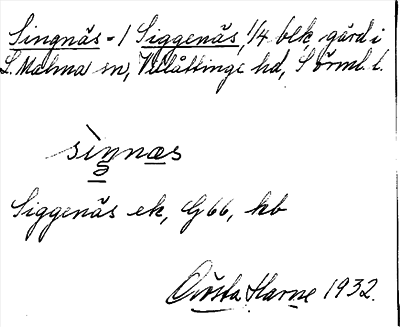 Singnäs - / Siggenäs, 1/4 blk gård i
L. Malma sn, Villåttinge hd, Sörml. l.
sìnnæs
Siggenäs ek, G66, kb
Harne 1932.